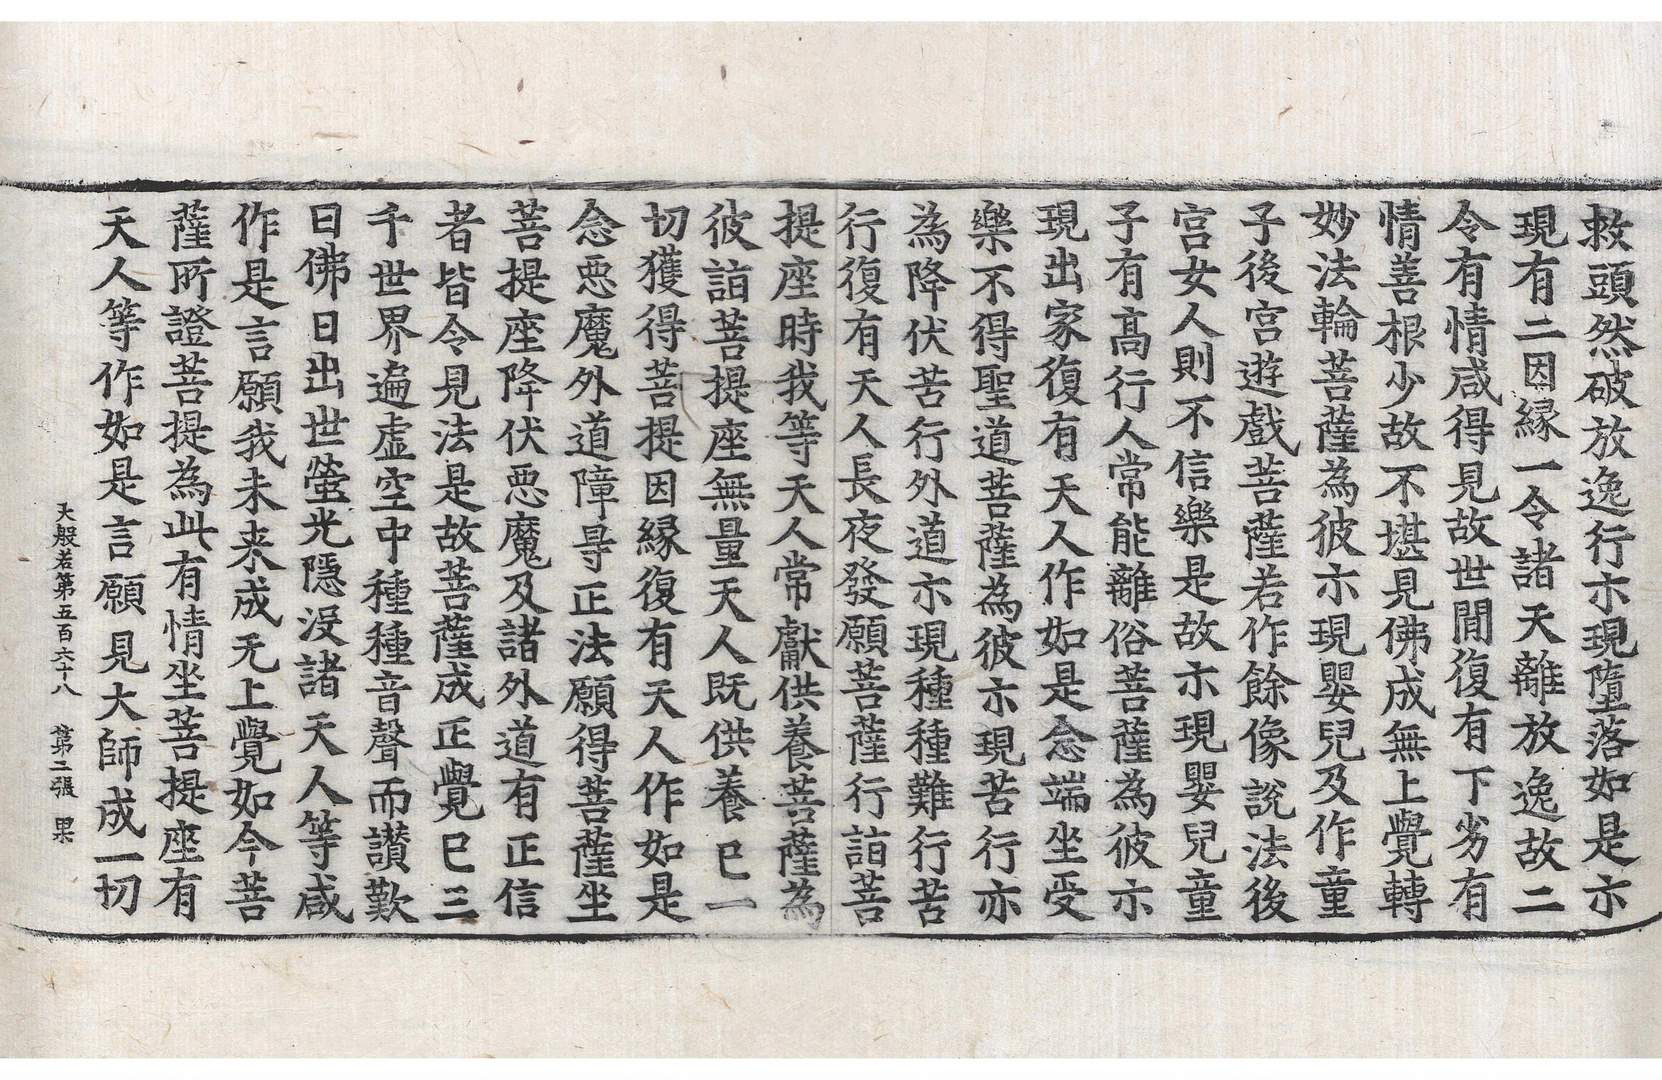 救頭然破放逸行亦現墮落如是亦
現有二因緣一令諸天離放逸故二
令有情咸得見故世間復有下劣有
情善根少故不堪見佛成無上覺轉
妙法輪菩薩為彼亦現嬰兒及作童
子後宮遊戲菩薩若作餘像說法後
宮女人則不信樂是故亦現嬰兒童
子有高行人常能離俗菩薩為彼亦
現出家復有天人作如是念端坐受
樂不得聖道菩薩為彼亦現苦行亦
為降伏苦行外道亦現種種難行苦
行復有天人長夜發願菩薩行詣菩
提座時我等天人常獻供養菩薩為
彼詣菩提座無量天人既供養已一
切獲得菩提因緣復有天人作如是
念惡魔外道障㝵正法願得菩薩坐
菩提座降伏惡魔及諸外道有正信
者皆令見法是故菩薩成正覺已三
千世界遍虛空中種種音聲而讚歎
曰佛日出世螢光隱沒諸天人等咸
作是言願我未來成无上覺如今菩
薩所證菩提為此有情坐菩提座有
天人等作如是言願見大師成一切
大般若第五百六十八 第二張 果